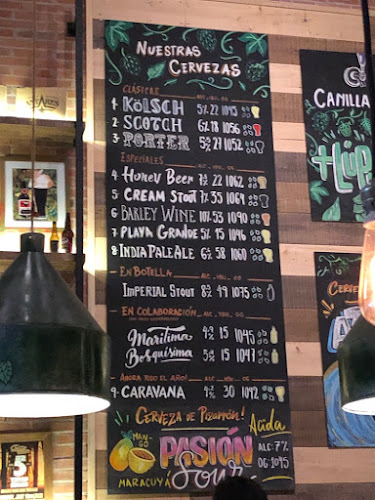 NUESTRAS
CERVEZAS
CLÁSICAS
1- KÖLSCH 5% 22 1045
2- SCOTCH 6% 18 1056
3- PORTER 5% 27 1052
ESPECIALES
4- Honey Beer 7% 22 1062
5- CREAM STOUT 7% 35 1061
6- BARLEY WINE 10% 53 1090
7- PLAYA GRANDE 5% 15 1046
8- INDIA PALE ALE 6% 58 1060
EN BOTELLA
IMPERIAL STOUT 8% 49 1075
EN COLABORACIÓN
Marítima 15 1045
Bosquísima 5% 15 1047
AHORA TODO EL AÑO!
9- CARAVANA 30 1042
Cerveza de Pizarrón!
MANGO
MARACUYÁ
PASIÓN
Sour
Ácida
ALC: 7%
OG: 1045
CANILLA
LúP
CERVE
5